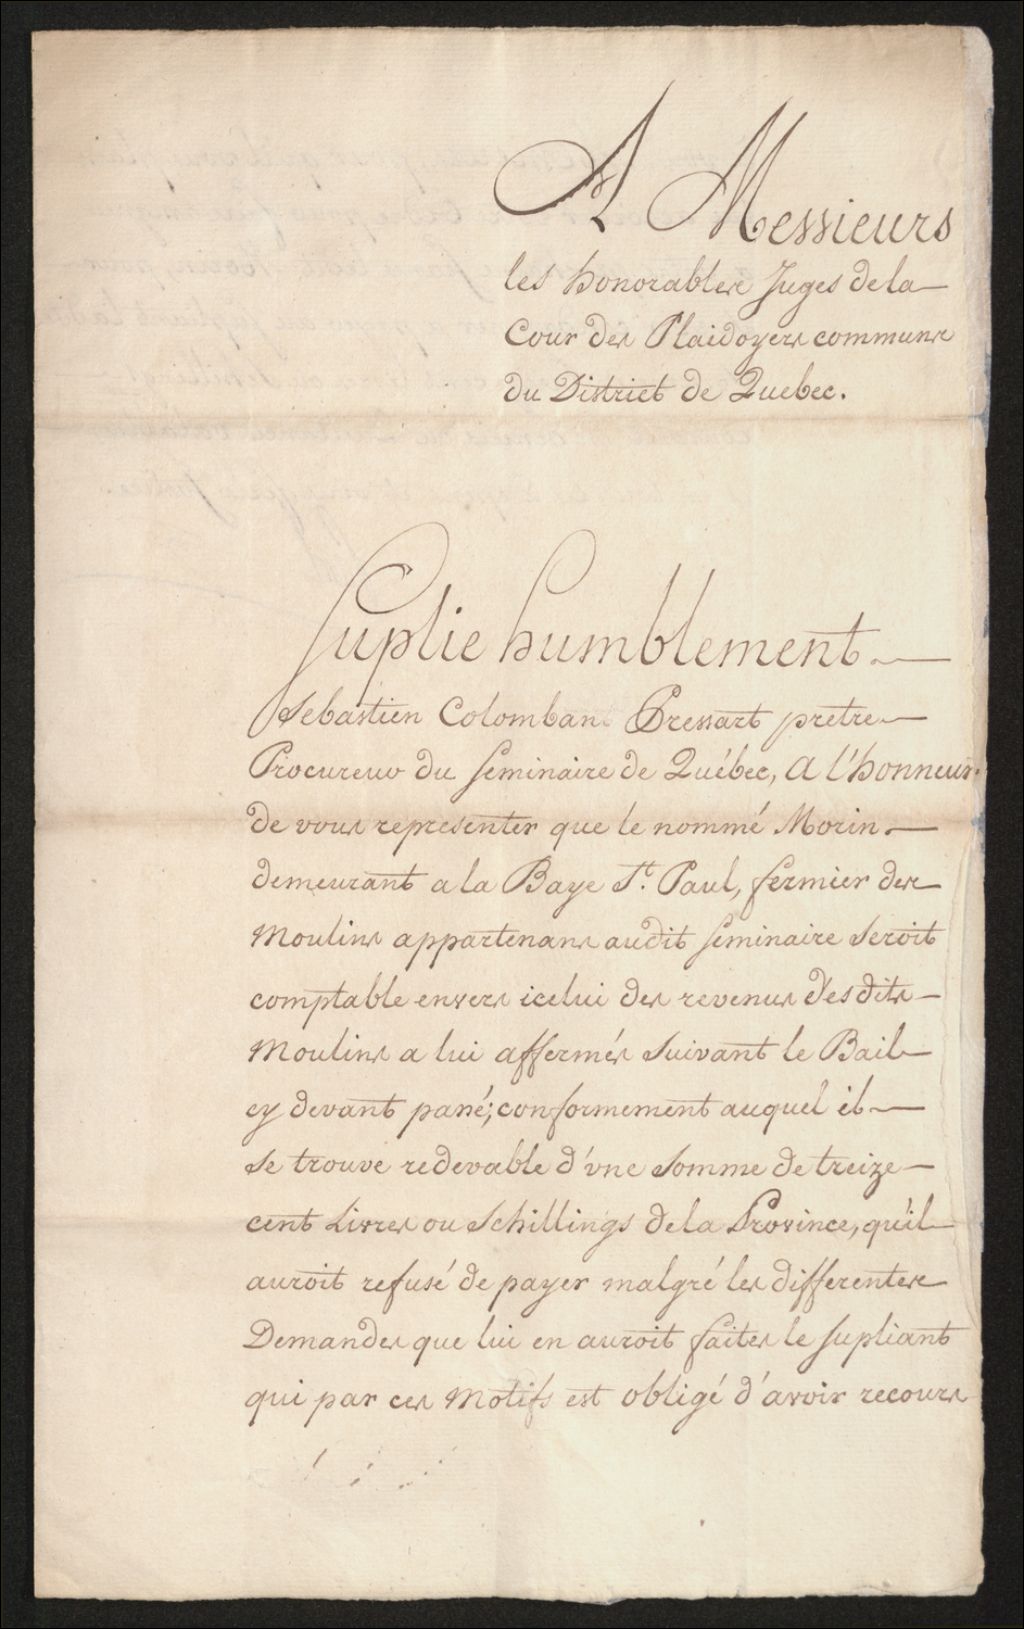 A Messieurs
les honorables Juges de la
Cour des Plaidoyers communs
du District de Quebec.
Suplie humblement
Sebastien Colomban Pressart pretre
Procureur du seminaire de Québec, A l'honneur
de vous representer que le nommé Morin
demeurant a la Baye St. Paul, fermier des
Moulins appartenans audit seminaire seroit
comptable envers icelui des revenus d'esdits
Moulins a lui affermés suivant le Bail
cy devant passé; conformement auquel il
se trouve redevable d'vne somme de treize
cent Livres ou schillings de la Province, qu'il
auroit refusé de payer malgré les differentes
Demandes que lui en auroit faites le supliant
qui par ces Motifs est obligé d'avoir recours